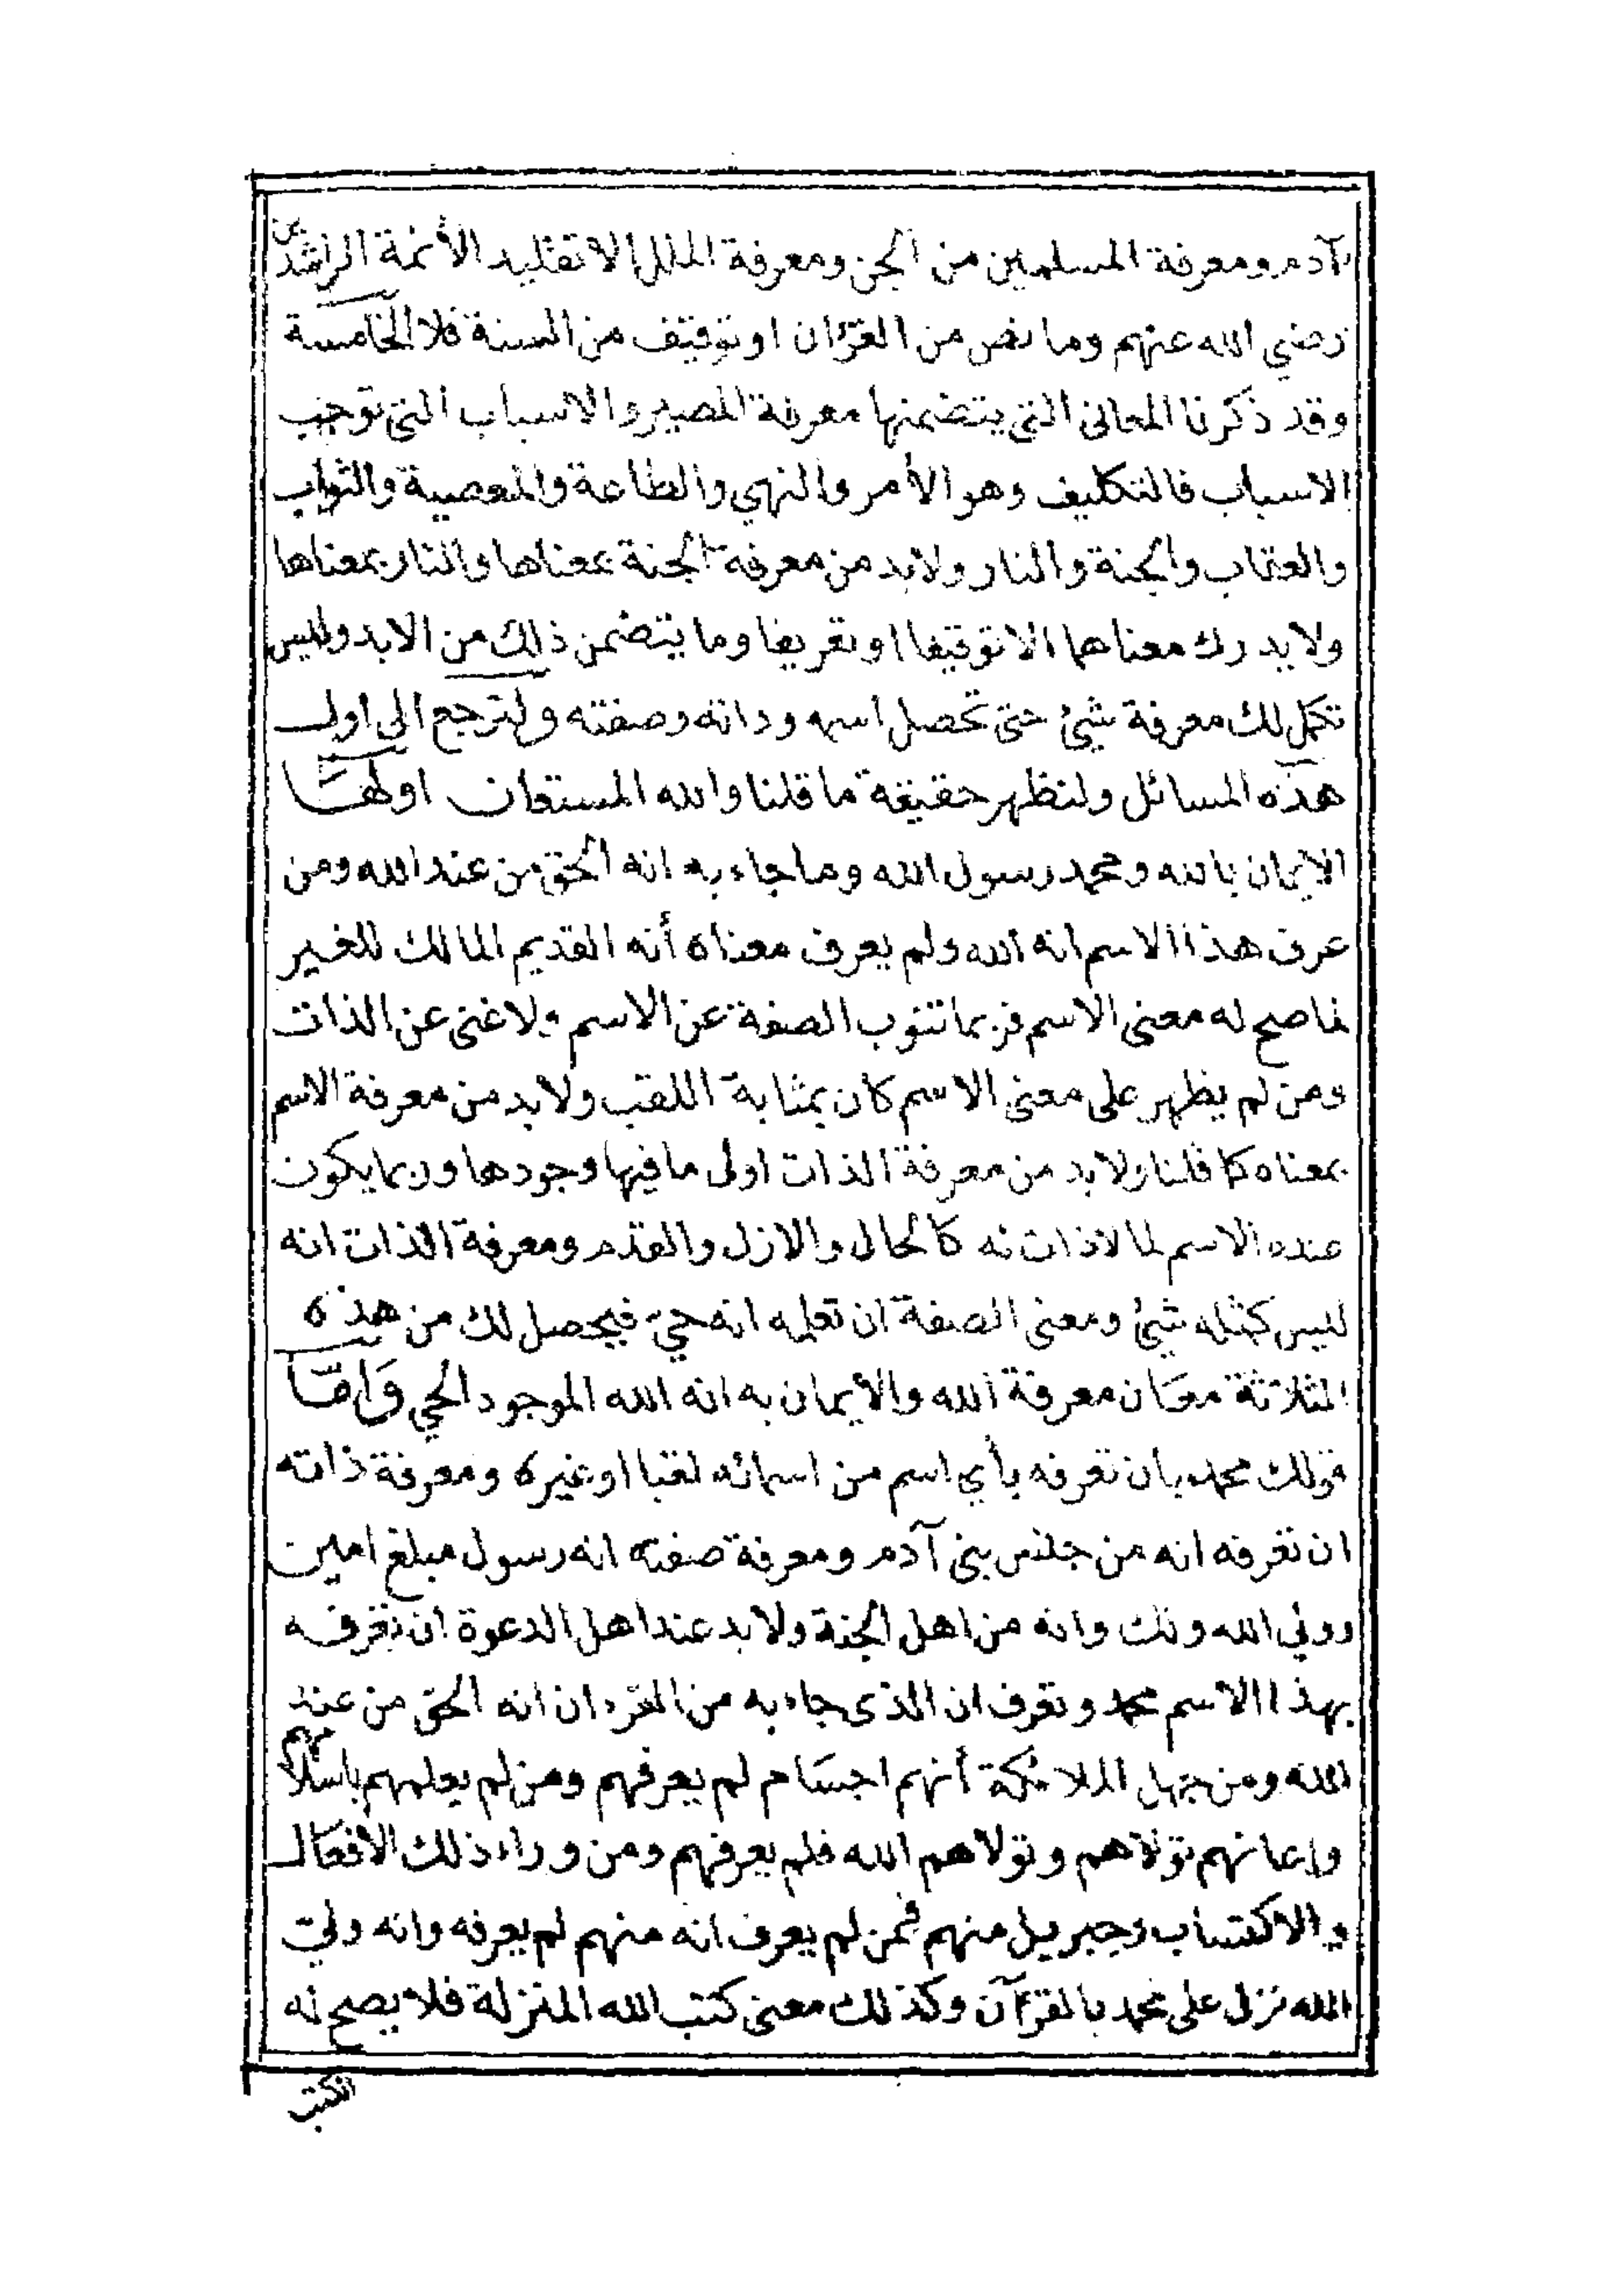 آدم ومعرفة المسلمين من الجن ومعرفة الملل الا تقليد الأئمة الراشدين
رضي الله عنهم وما نص من القرءان او توقيف من السنة فلا الخامسة
وقد ذكرنا المعانى التي يتضمنها معرفة المصير والاسباب التي توجب
الاسباب فالتكليف وهو الأمر والنهي والطاعة والمعصية والثواب
والعقاب والجنة والنار ولابد من معرفة الجنة بمعناها والنار بمعناها
ولا يدرك معناهما الا توقيفا او تعريفا وما يتضمن ذلك من الابد وليس
تكمل لك معرفة شيئ حتى تحصل اسمه وذاته وصفته ولترجع الى اول
هذه المسائل ولنظهر حقيقة ما قلنا والله المستعان اولها
الايمان بالله ومحمد رسول الله وما جاء به انه الحق من عند الله ومن
عرف هذا الاسم انه الله ولم يعرف معناه أنه القديم المالك للغير
فما صح له معنى الاسم فربما تنوب الصفة عن الاسم ولا غنى عن الذات
ومن لم يظهر على معنى الاسم كان بمثابة اللقب ولابد من معرفة الاسم
بمعناه كما قلنا ولابد من معرفة الذات اولى ما فيها وجودها وربما يكون
عنده الاسم لما لا ذات له كالحال والازل والقدم ومعرفة الذات انه
ليس كمثله شيئ ومعنى الصفة ان تعلمه انه حيّ فيحصل لك من هذه
الثلاثة معان معرفة الله والأيمان به انه الله الموجود الحي وَامّا
قولك محمد بان تعرفه بأي اسم من اسمائه لقبا او غيره ومعرفة ذاته
ان تعرفه انه من جنس بني آدم ومعرفة صفته انه رسول مبلغ امين
وولي الله ولك وانه من اهل الجنة ولابد عند اهل الدعوة ان تعرفه
بهذا الاسم محمد وتعرف ان الذى جاء به من القرءان انه الحق من عند
الله ومن جهل الملائكة أنهم اجسَام لم يعرفهم ومن لم يعلمهم باسلامهم
وإيمانهم تولاهم وتولاهم الله فلم يعرفهم ومن وراء ذلك الافعَال
والاكتساب وجبريل منهم فمن لم يعرف انه منهم لم يعرفه وانه وليّ
الله نزل على محمد بالقرآن وكذلك معنى كتب الله المنزلة فلا يصح له
الكتب